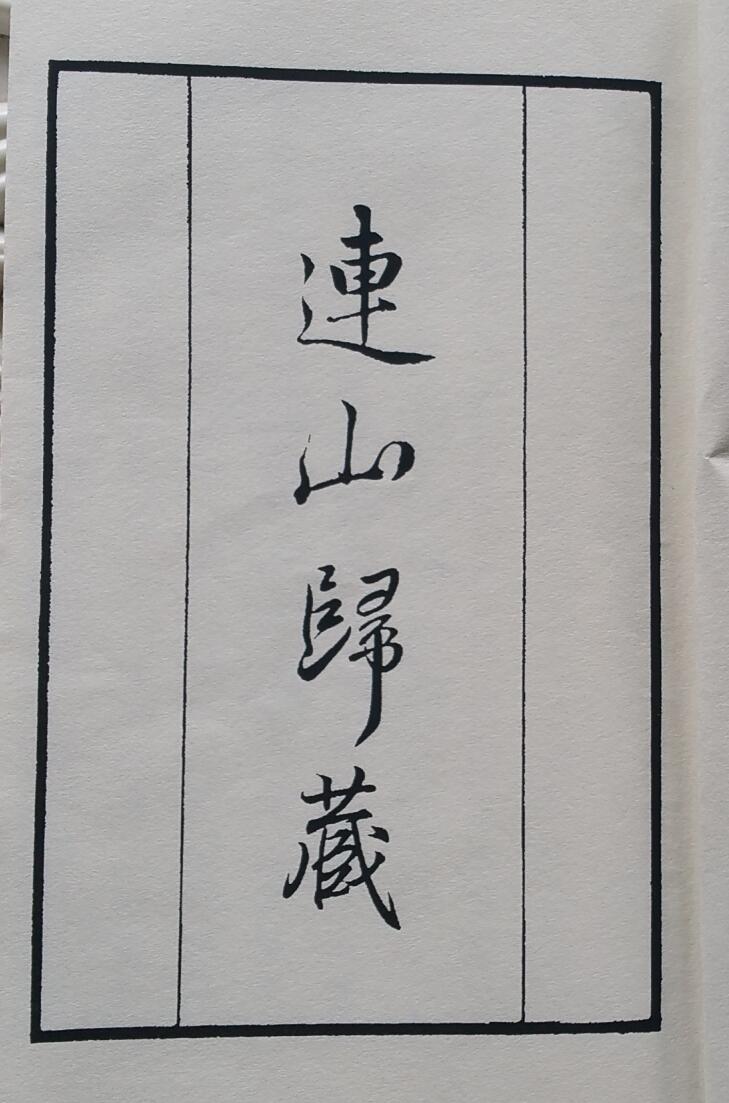 連山歸藏